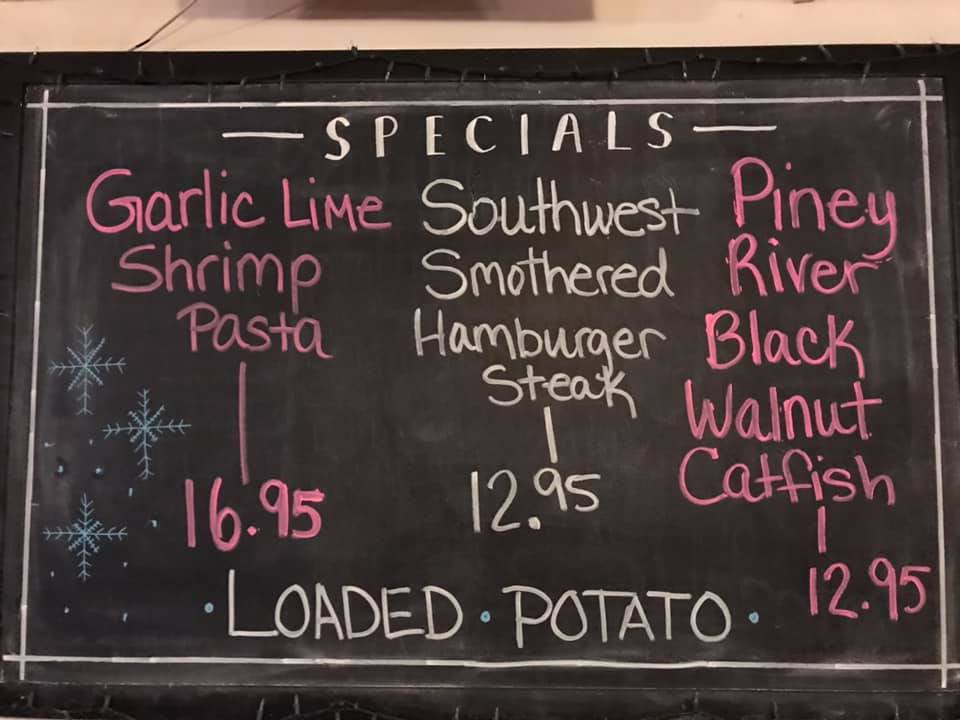 SPECIALS
Garlic Lime
Shrimp
Pasta
16.95
Southwest
Smothered
Hamburger
Steak
12.95
Piney
River
Black
Walnut
Catfish
12.95
• LOADED • POTATO •